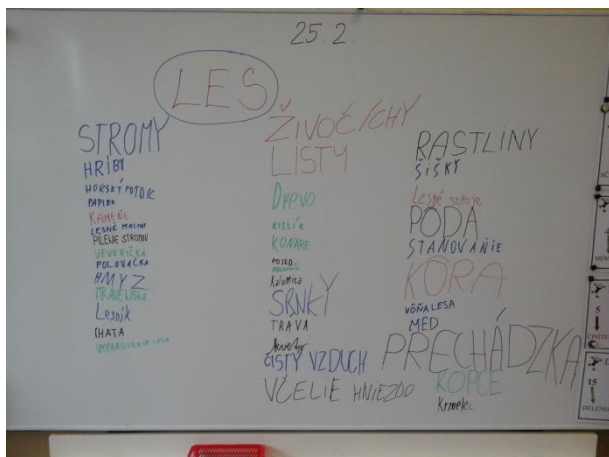 25.2.
LES
STROMY
HRÍBY
HORSKÝ POTOK
PAPIER
KAMEŇE
LESNÉ MALINY
PÍLENIE STROMU
VEVERIČKA
POĽOVAČKA
HMYZ
MRAVENISKO
Lesník
CHATA
VYPAROVANIE LESA
ŽIVOČÍCHY
LISTY
Drevo
KONÁRE
POSED
SRNKY
TRAVA
kvety
ČISTÝ VZDUCH
VČELIE HNIEZDO
RASTLINY
ŠIŠKY
Lesné
PÔDA
STANOVANIE
KÔRA
VÔŇA LESA
MED
PRECHÁDZKA
KOPCE
Krmelec
5
15